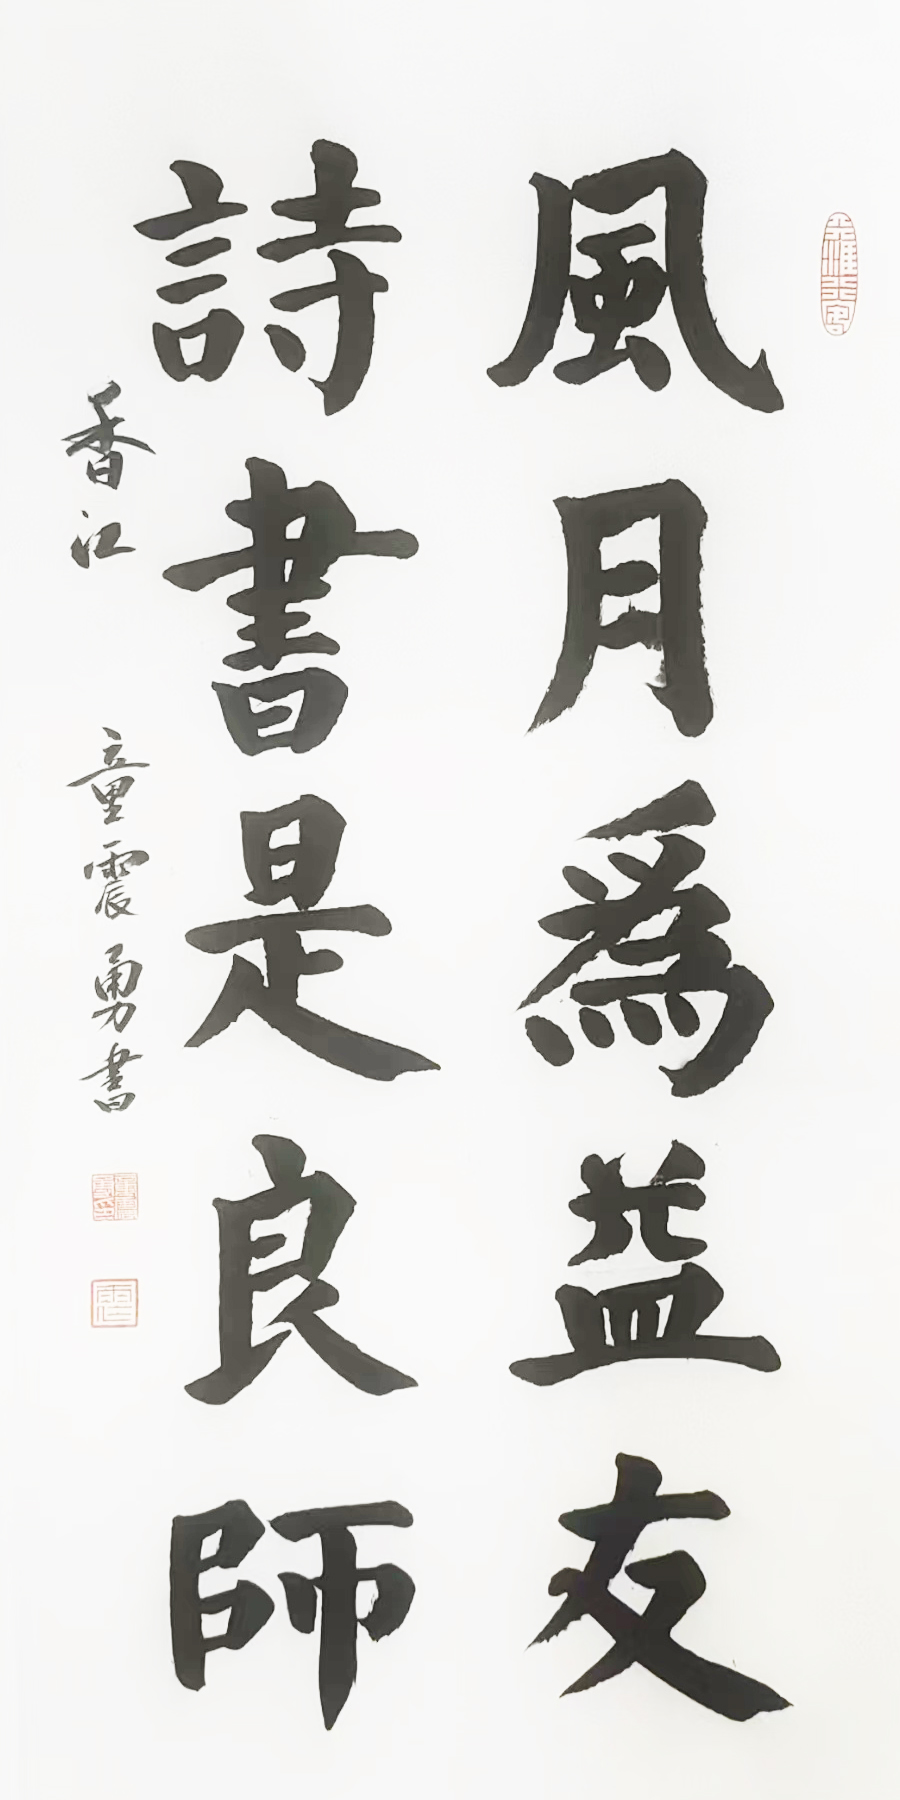 風月爲益友
詩書是良師
香江 童震勇書